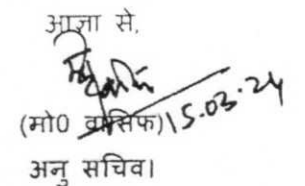 आज्ञा से,
(मो0 वासिफ) 15.03.24
अनु सचिव।